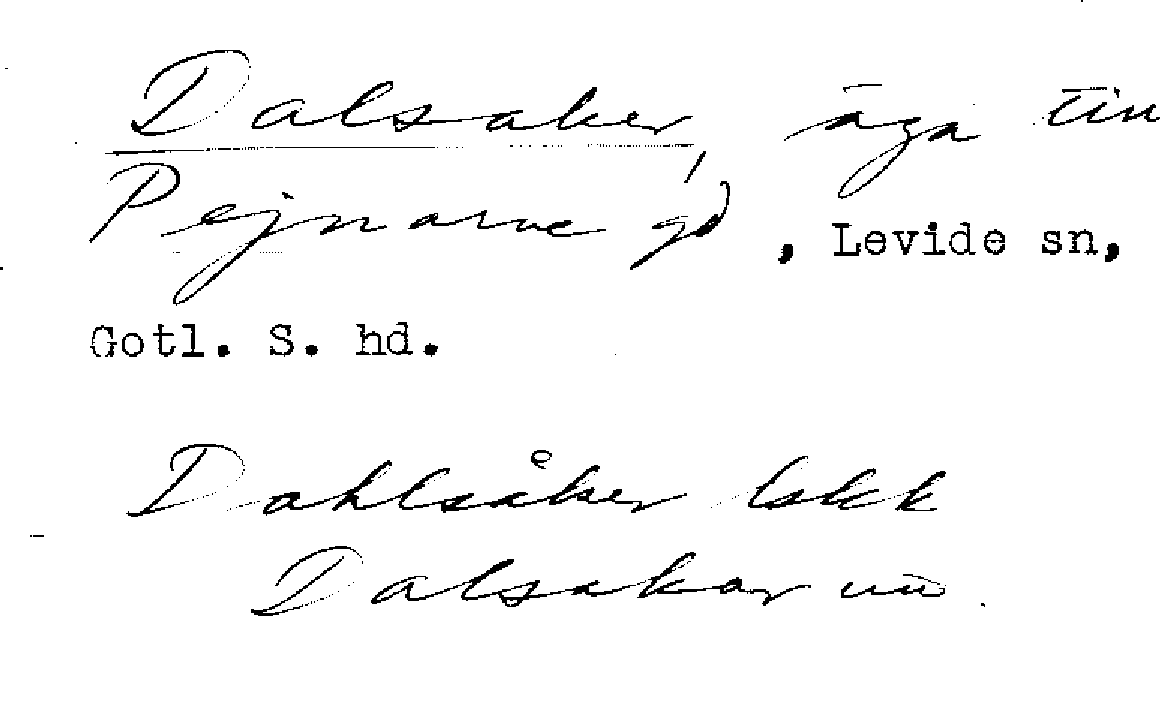 Dalsaker, äga till
Pejnarve gd, Levide sn,
Gotl. S. hd.
Dahlsåker lskk
Dalsakar